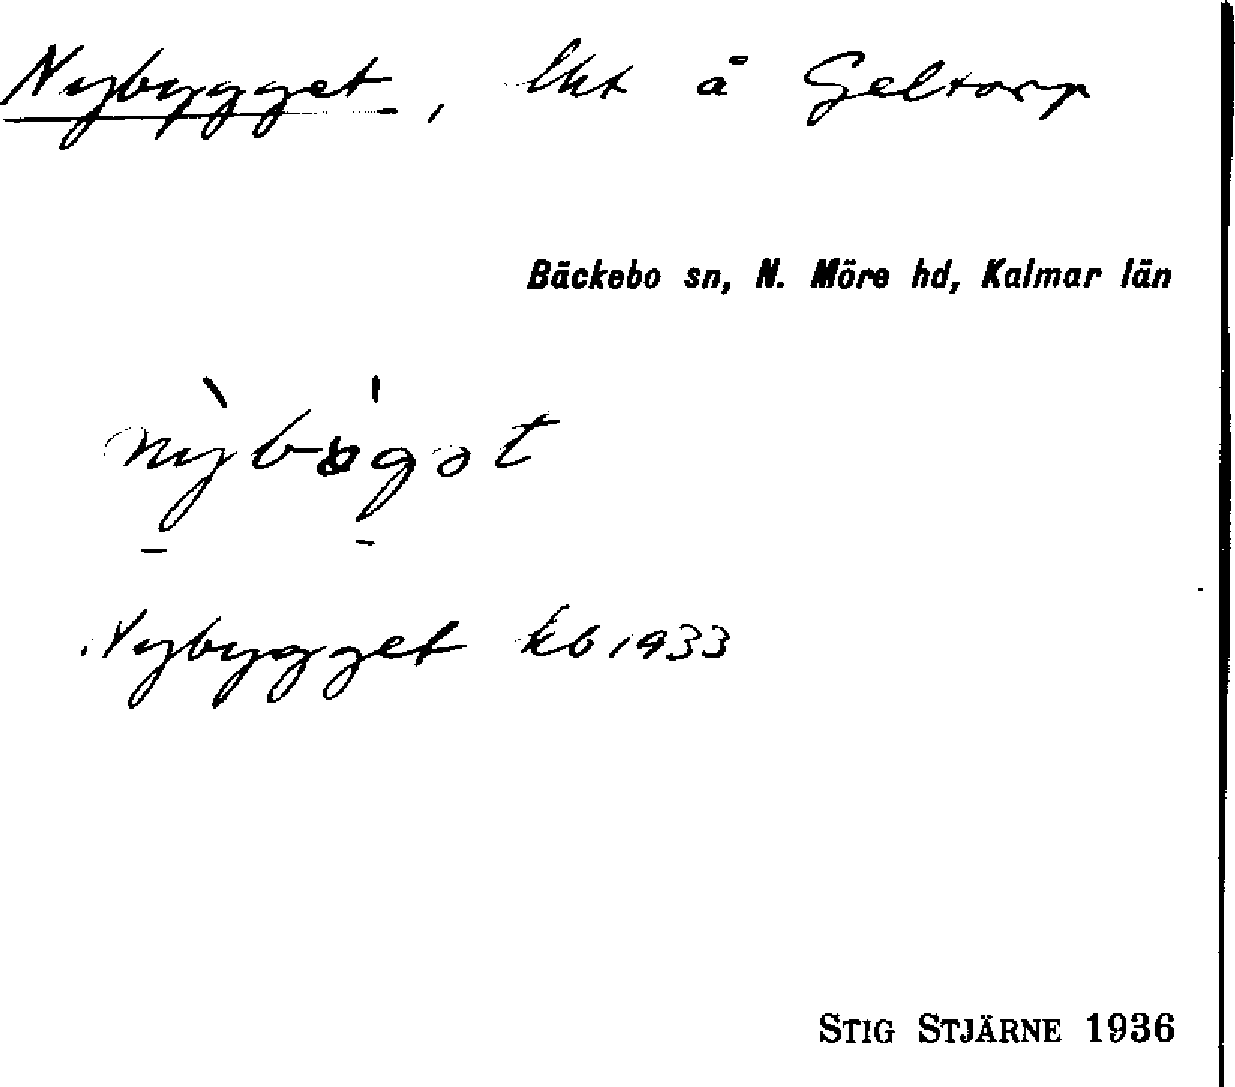 Nybygget, lht å Geltorp
Bäckebo sn, N. Möre hd, Kalmar län
Nybygget kb 1933
STIG STJÄRNE 1936